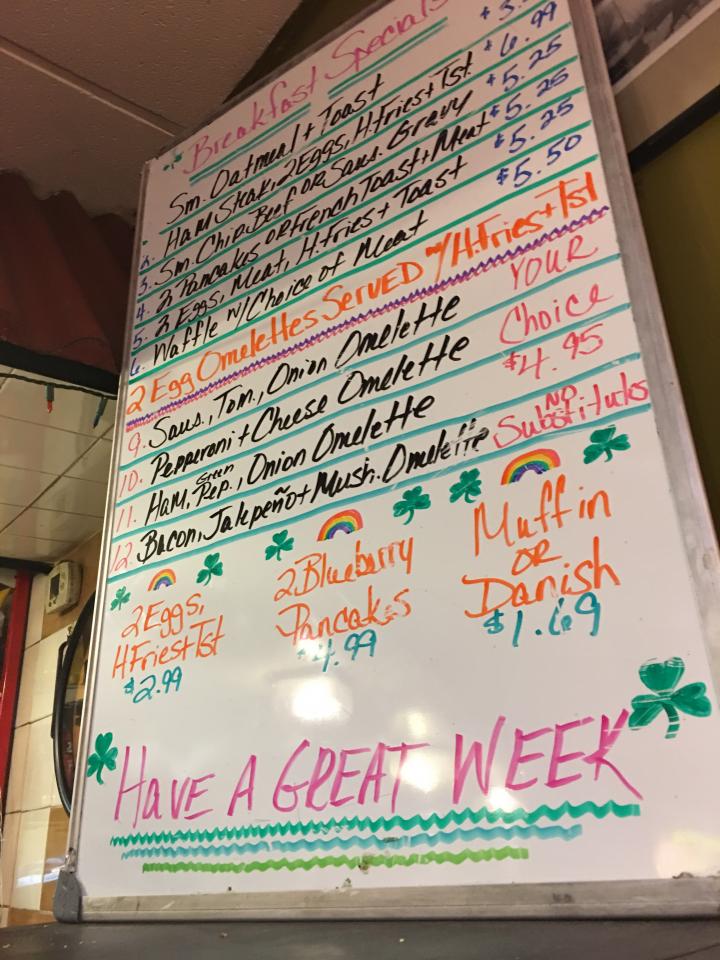 Breakfast Specials
Sm. Oatmeal + Toast $3.
2. Ham Steak, 2 Eggs, H.Fries + Tst. $6.99
3. Sm. Chip Beef OR Saus. Gravy $5.25
4. 2 Pancakes OR French Toast + Meat $5.25
5. 2 Eggs, Meat, H.Fries + Toast $5.25
6. Waffle w/Choice of Meat $5.50
2 Egg Omelettes SERVED w/H.Fries + Tst
9. Saus., Tom., Onion Omelette
10. Pepperoni + Cheese Omelette
11. Ham, Green Pep., Onion Omelette
12. Bacon, Jalepeño + Mush. Omelette
YOUR
Choice
$4.95
NO
Substitutes
2 Eggs,
H.Fries + Tst
$2.99
2 Blueberry
Pancakes
$4.99
Muffin
OR
Danish
$1.69
HAVE A GREAT WEEK